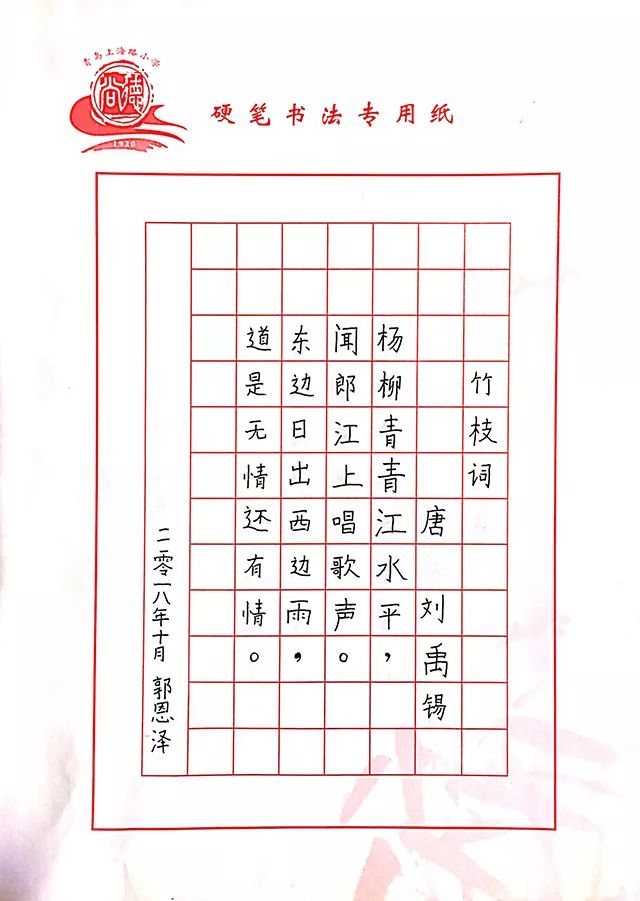 青岛上海路小学
尚德
1920
硬笔书法专用纸
竹枝词
唐 刘禹锡
杨柳青青江水平，
闻郎江上唱歌声。
东边日出西边雨，
道是无情还有情。
二零一八年十月 郭恩泽